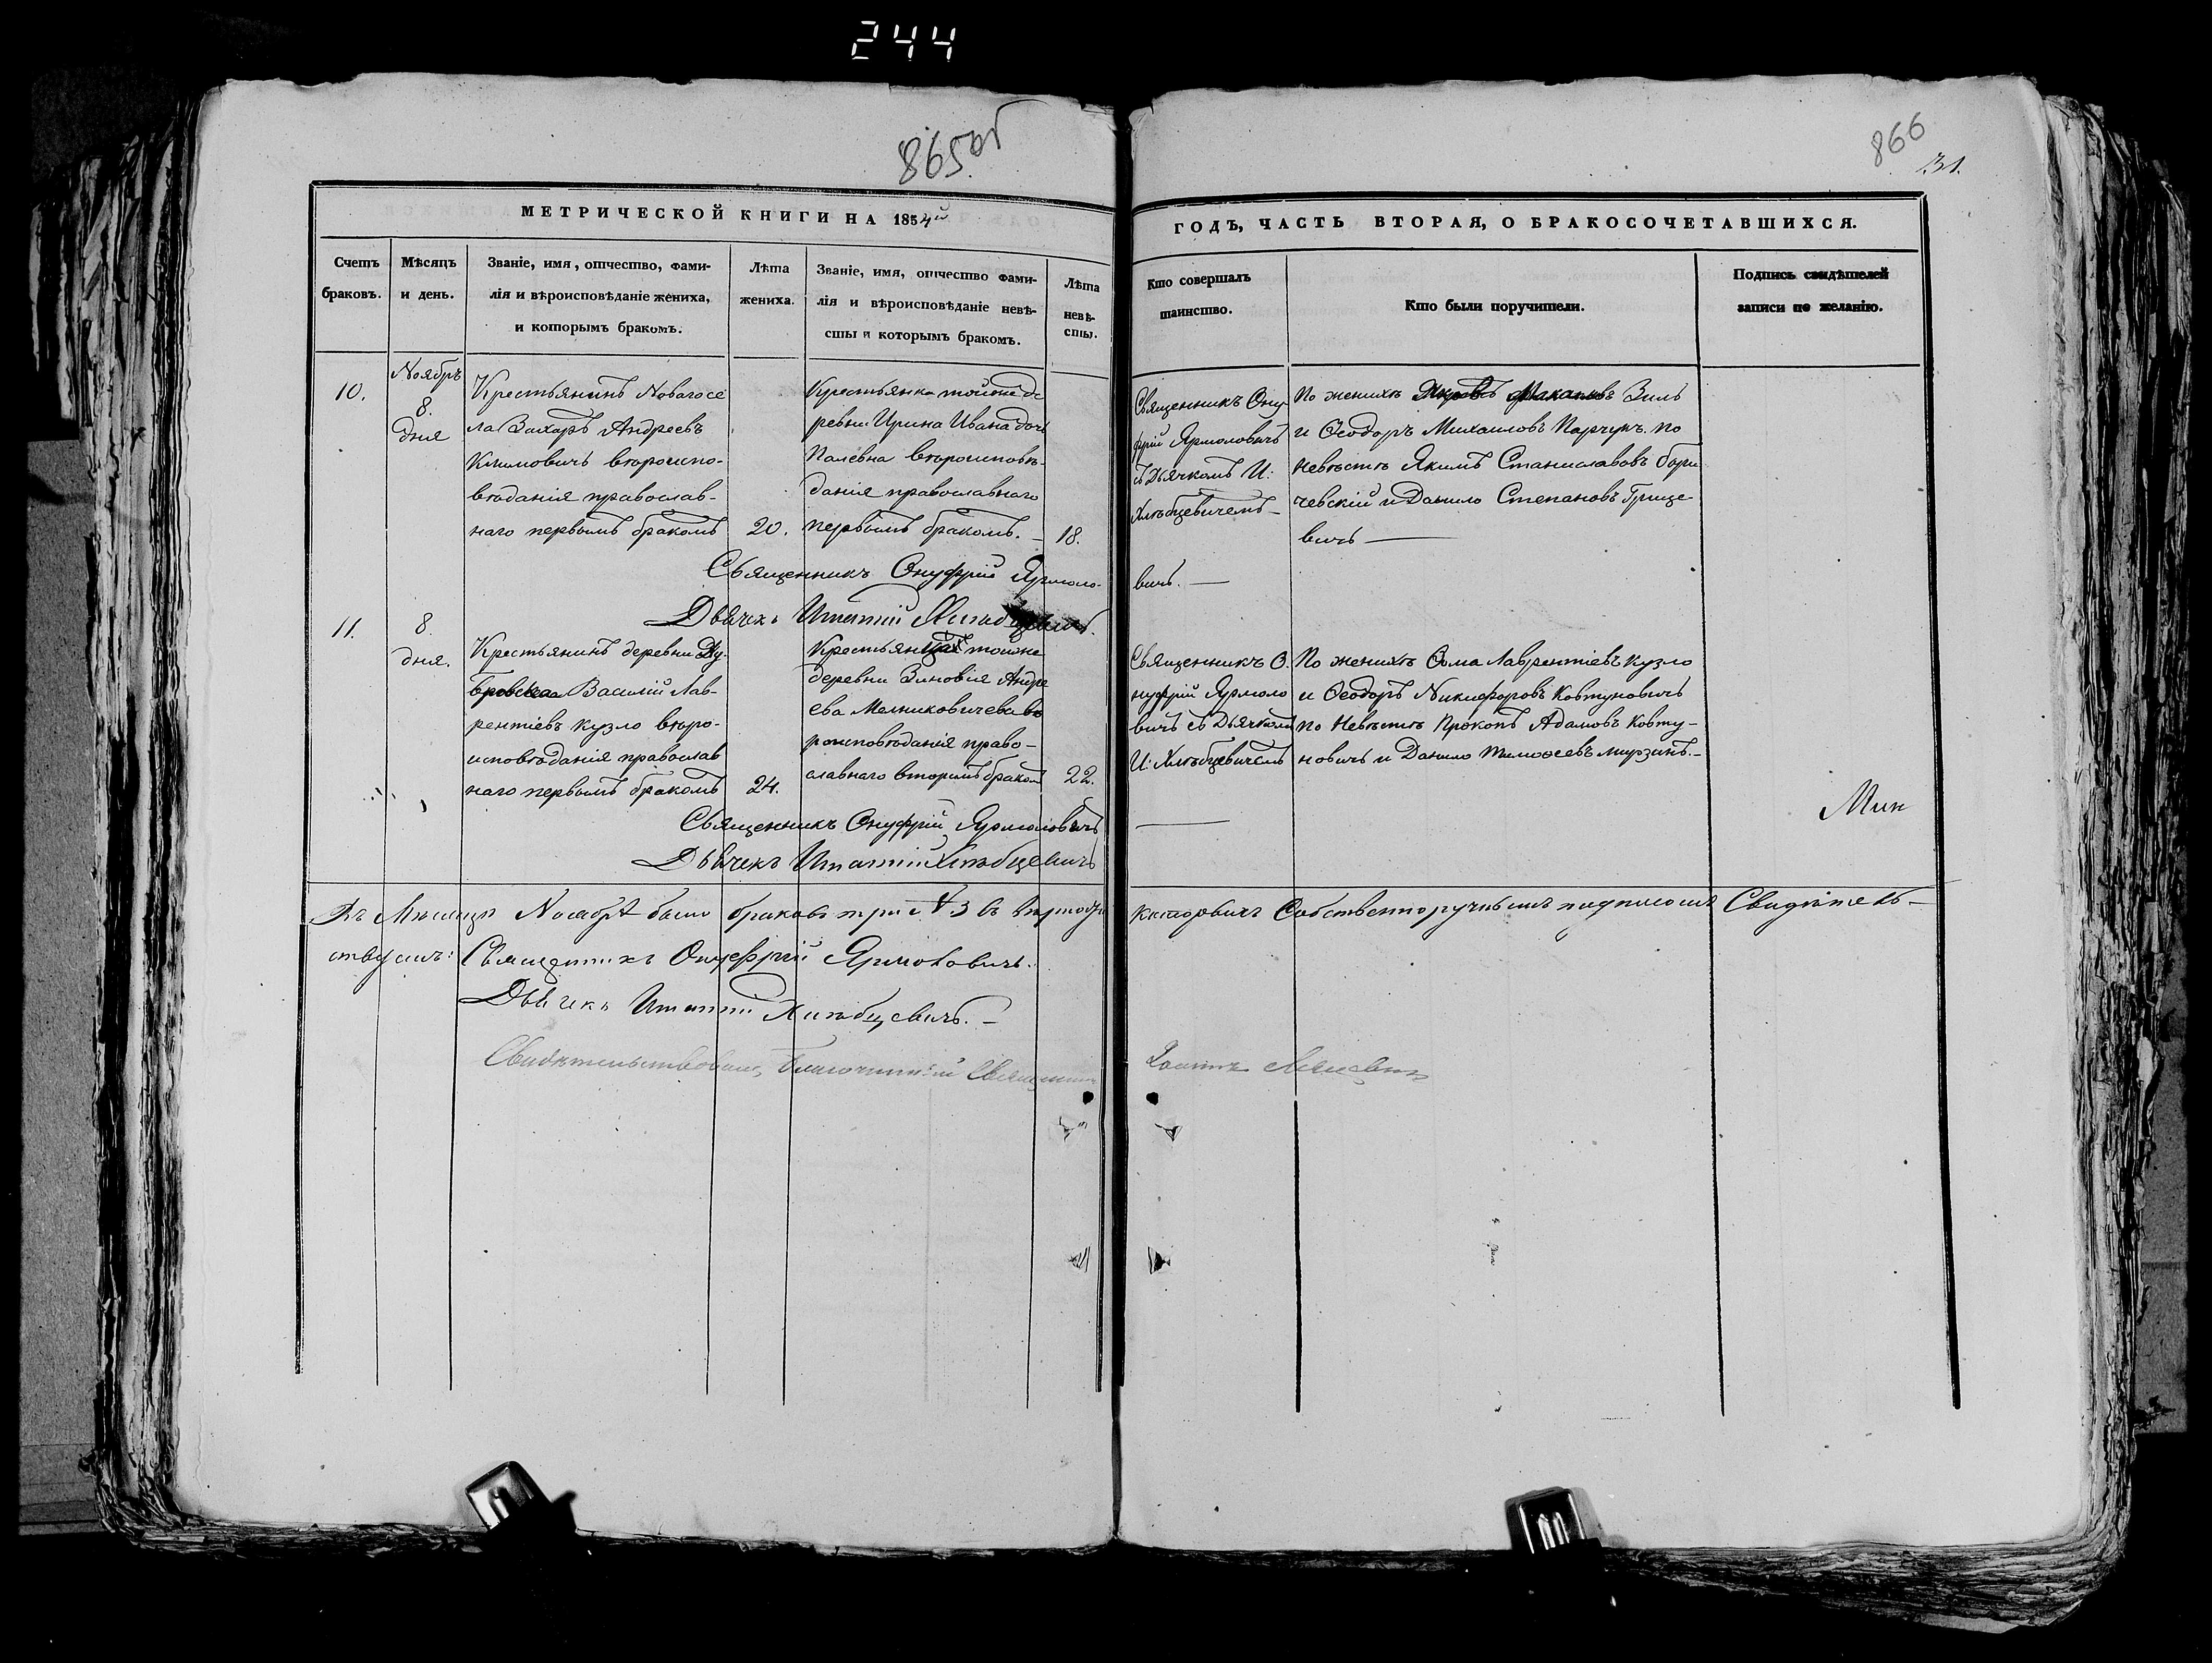 244
865об
866
131.
МЕТРИЧЕСКОЙ КНИГИ НА 1854й
ГОДЪ, ЧАСТЬ ВТОРАЯ, О БРАКОСОЧЕТАВШИХСЯ.
Счетъ
браковъ.
Мѣсяцъ
и день.
Званіе, имя, отчество, фами-
лія и вѣроисповѣданіе жениха,
и которымъ бракомъ.
Лѣта
жениха.
Званіе, имя, отчество фами-
лія и вѣроисповѣданіе невѣ-
сты и которымъ бракомъ.
Лѣта
невѣ-
сты.
Кто совершалъ
таинство.
Кто были поручители.
Подпись свидѣтелей
записи по желанію.
10.
Ноябрь
8.
дня
Крестьянинъ Новагосе
ла Захаръ Андреевъ
Климовичъ вѣроиспо-
вѣданія православ-
наго первымъ бракомъ
20.
Крестьянка тойже де
ревни Ирина Ивана дочь
вѣроисповѣ-
данія православнаго
первымъ бракомъ. —
18.
Священникъ Ону
фрій Ярмоловичъ
съ Дьячкомъ И:
Хлѣбцевичемъ —
По женихѣ Зиль
и Ѳеодоръ Михаиловъ Парчукъ по
невѣстѣ Якимъ Станиславовъ бори
чевскій и Данило Степановъ Грице
вичъ —
Священникъ Онуфрій Ярмоло-
вичъ. —
Дьячекъ
11.
8.
дня.
Крестьянинъ деревни Ду
Василій Лав-
рентіевъ Кузло вѣро-
исповѣданія православ
наго первымъ бракомъ
24.
тойже
деревни Зиновія Андре
ева Мельниковичева вѣ
роисповѣданія право-
славнаго вторымъ бракомъ
22.
Священникъ О.
нуфрій Ярмоло
вичъ съ Дьячкомъ
И: Хлѣбцевичемъ
По женихѣ Ѳома Лаврентіевъ Кузло
и Ѳеодоръ Никифоровъ Ковтуновичъ
по Невѣстѣ Прокопъ Адамовъ Ковту-
новичъ и Данило Тимоѳеевъ мурзинъ. —
Мин
Священникъ Онуфрій Ярмоловичъ
Дьячекъ Хлѣбцевичъ
Въ Мѣсяцѣ Ноябрѣ было браковъ три № 3 въ
Собственоручнымъ подписомъ Свидѣтель-
ствуемъ: Священникъ Онуфрій Ярмоловичъ.
Дьячекъ Хлѣбцевичъ. —
Свидѣтельствовалъ Благочинный Священникъ Іоаннъ